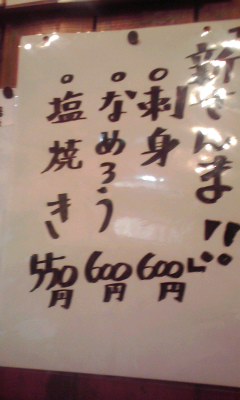 新さんま!!
○刺身 600円
○なめろう 600円
○塩焼き 550円